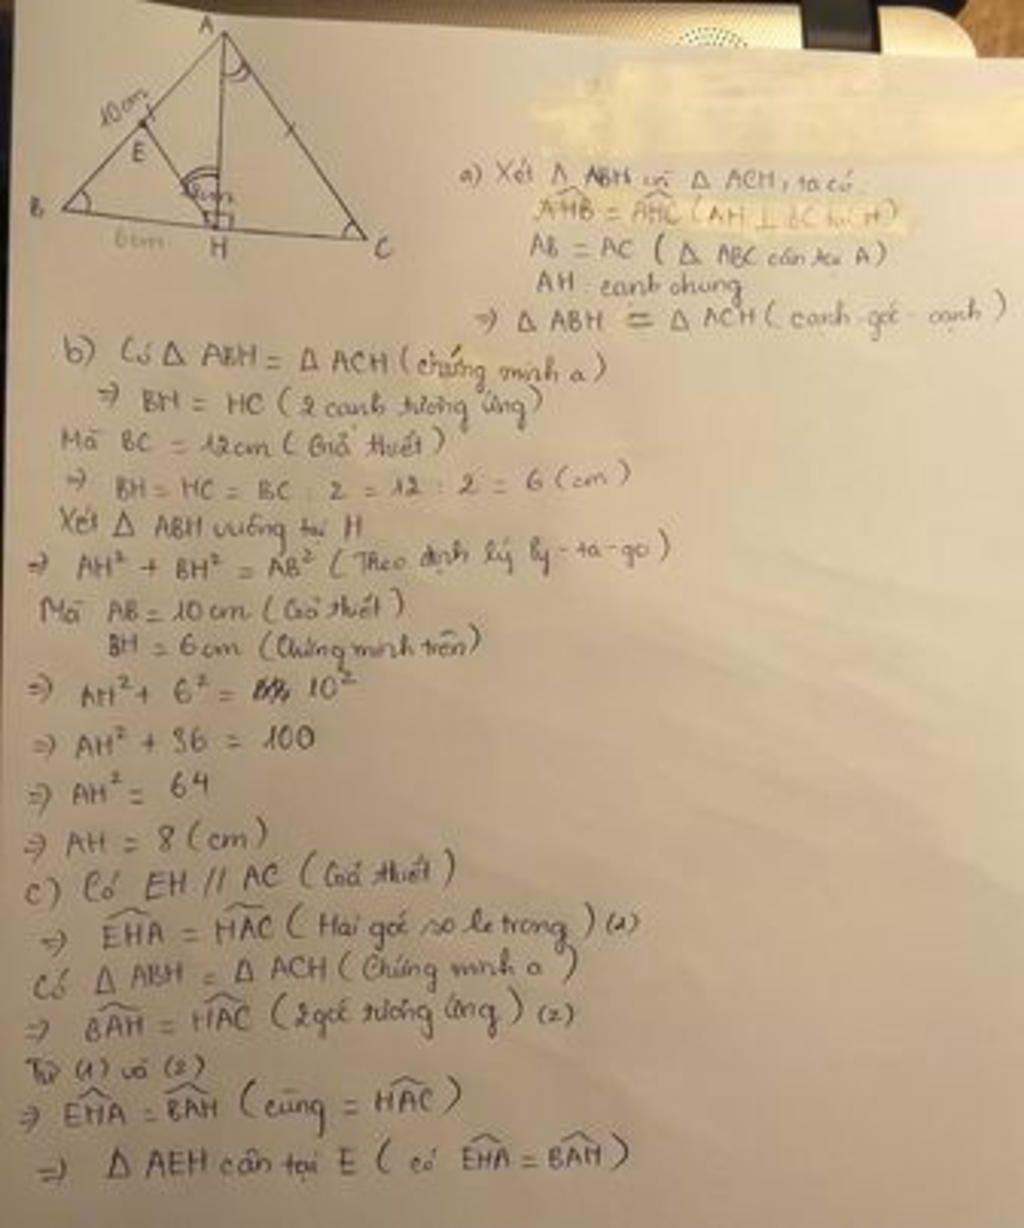 A
10cm
E
B
8cm
6cm
H
C
a) Xét Δ ABH và Δ ACH, ta có
AHB = AHC (AH ⊥ BC tại H)
AB = AC (Δ ABC cân tại A)
AH cạnh chung
=> Δ ABH = Δ ACH (cạnh - góc - cạnh)
b) Có Δ ABH = Δ ACH (chứng minh a)
=> BH = HC (2 cạnh tương ứng)
Mà BC = 12cm (Giả thiết)
=> BH = HC = BC : 2 = 12 : 2 = 6 (cm)
Xét Δ ABH vuông tại H
=> AH² + BH² = AB² (Theo định lý Py-ta-go)
Mà AB = 10cm (Giả thiết)
BH = 6cm (Chứng minh trên)
=> AH² + 6² = 10²
=> AH² + 36 = 100
=> AH² = 64
=> AH = 8 (cm)
c) Có EH // AC (Giả thiết)
=> EHA = HAC (Hai góc so le trong) (1)
Có Δ ABH = Δ ACH (Chứng minh a)
=> BAH = HAC (2 góc tương ứng) (2)
Từ (1) và (2)
=> EHA = BAH (cùng = HAC)
=> Δ AEH cân tại E (có EHA = BAH)